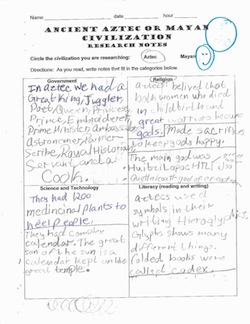 Name date hour
ANCIENT AZTEC OR MAYAN
CIVILIZATION
RESEARCH NOTES
Circle the civilization you are researching: Aztec Mayan
Directions: As you read, write notes that fit in the categories below.
Government
In Aztec we had a
Great King, Juggler,
Poet,
Prince, Embroiderer
Prime Minister, Ambassador
Astronomer,
Scribe, Royal Historian
Servant, and a
Cook.
Religion
aztecs belived that
both women who died
in childbirth and
great warriors became
gods. Made sacrifice
to keep gods happy.
The main god was
Huitzilopochtli
Science and Technology
They had 1200
medicinal plants to
heel people.
They had complex
calendar. The great
son of the sun is a
calendar kept under
great temple.
Literacy (reading and writing)
aztecs used
symbols in their
writing Hieroglyphics.
Glyphs shows many
different things.
folded books were
called codex.